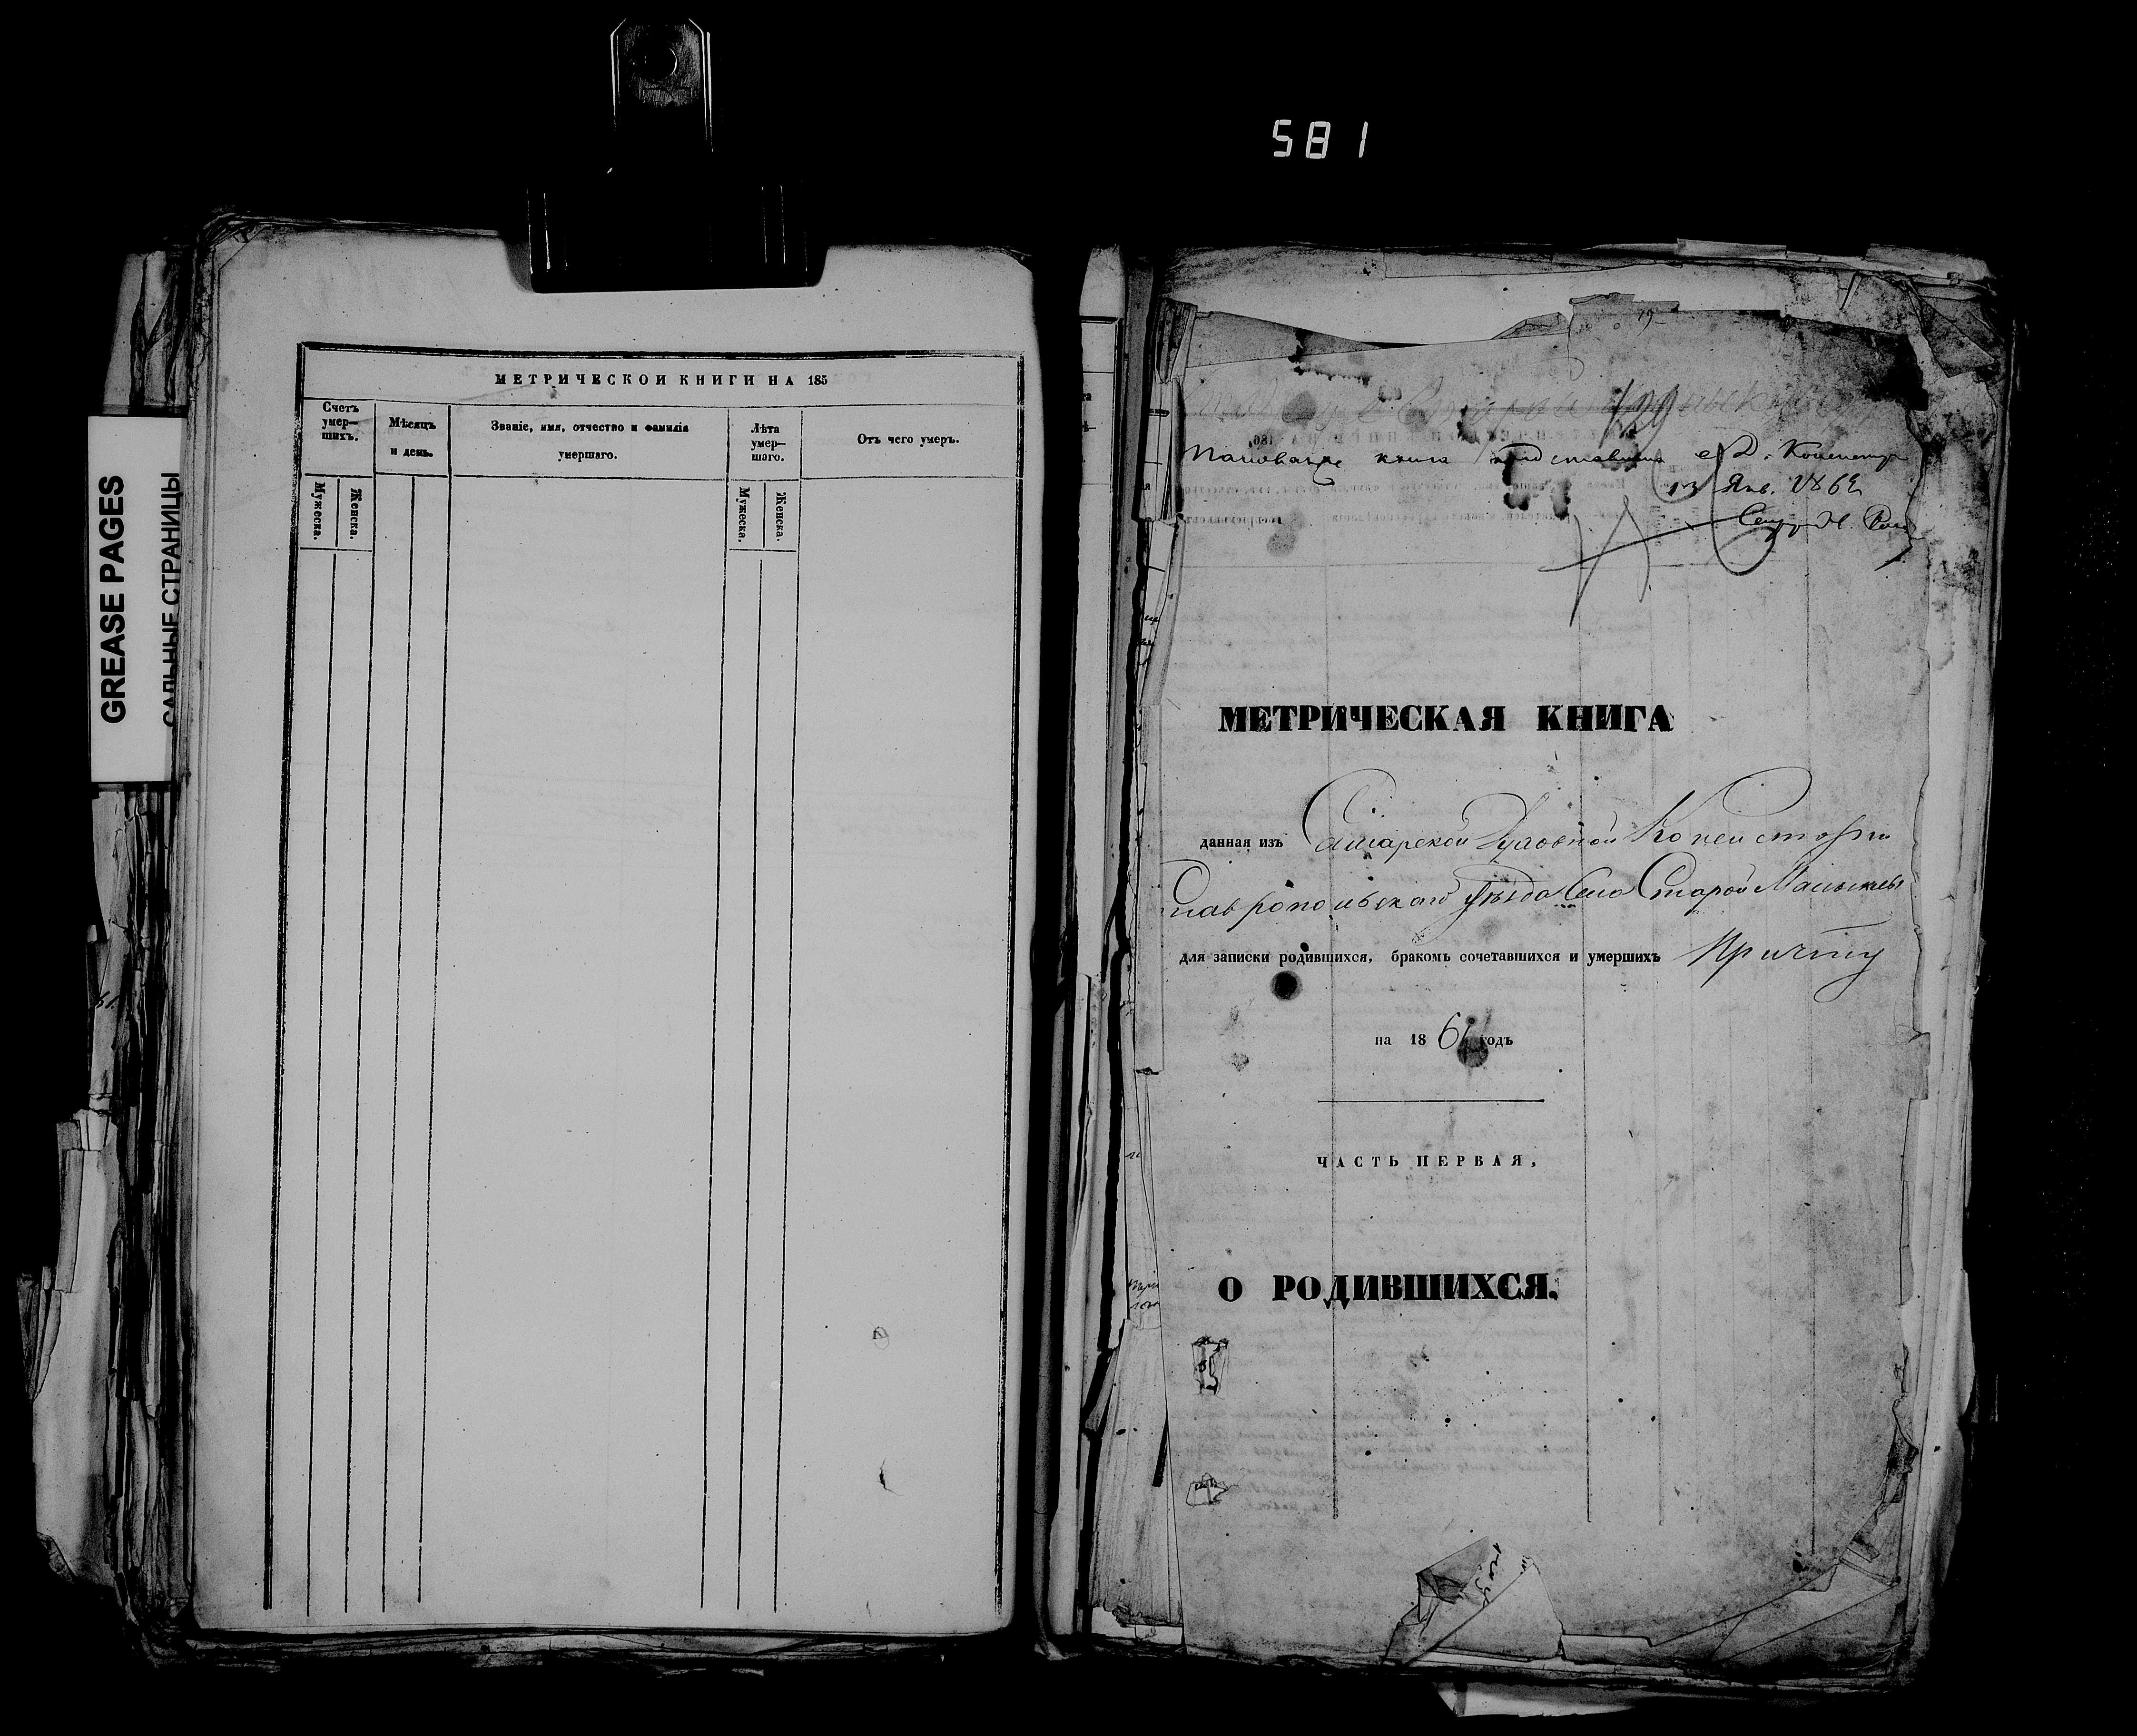 581
GREASE PAGES
САЛЬНЫЕ СТРАНИЦЫ
МЕТРИЧЕСКОЙ КНИГИ НА 185
Счетъ умер—шихъ.
Мужеска.
Женска.
Мѣсяцъ и день.
Званіе, имя, отчество и фамилія умершаго.
Лѣта умер—шаго.
Мужеска.
Женска.
Отъ чего умеръ.
книга
13 Янв. 1862
МЕТРИЧЕСКАЯ КНИГА
данная изъ Самарской Духовной Консисторіи
Ставропольскаго уѣзда Села Старой Майны
для записки родившихся, бракомъ сочетавшихся и умершихъ Причту
на 1861 годъ
ЧАСТЬ ПЕРВАЯ,
О РОДИВШИХСЯ.